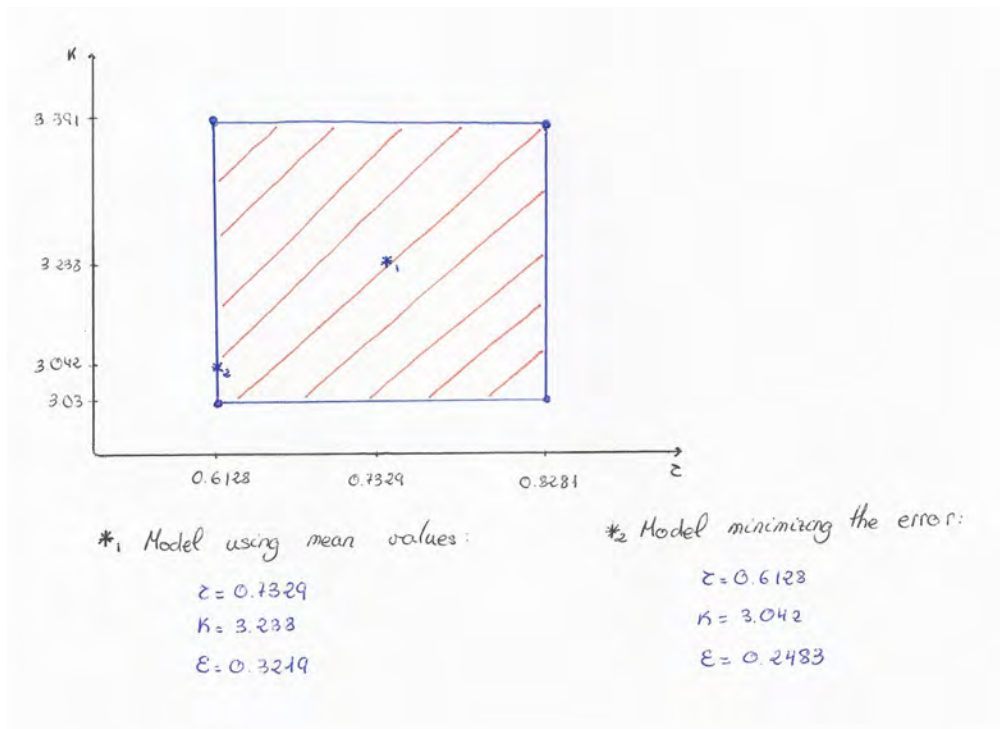 K
3.391
3.238
3.042
3.03
*1
*2
0.6128
0.7329
0.8281
τ
*1 Model using mean values:
τ = 0.7329
K = 3.238
ε = 0.3219
*2 Model minimizing the error:
τ = 0.6128
K = 3.042
ε = 0.2483